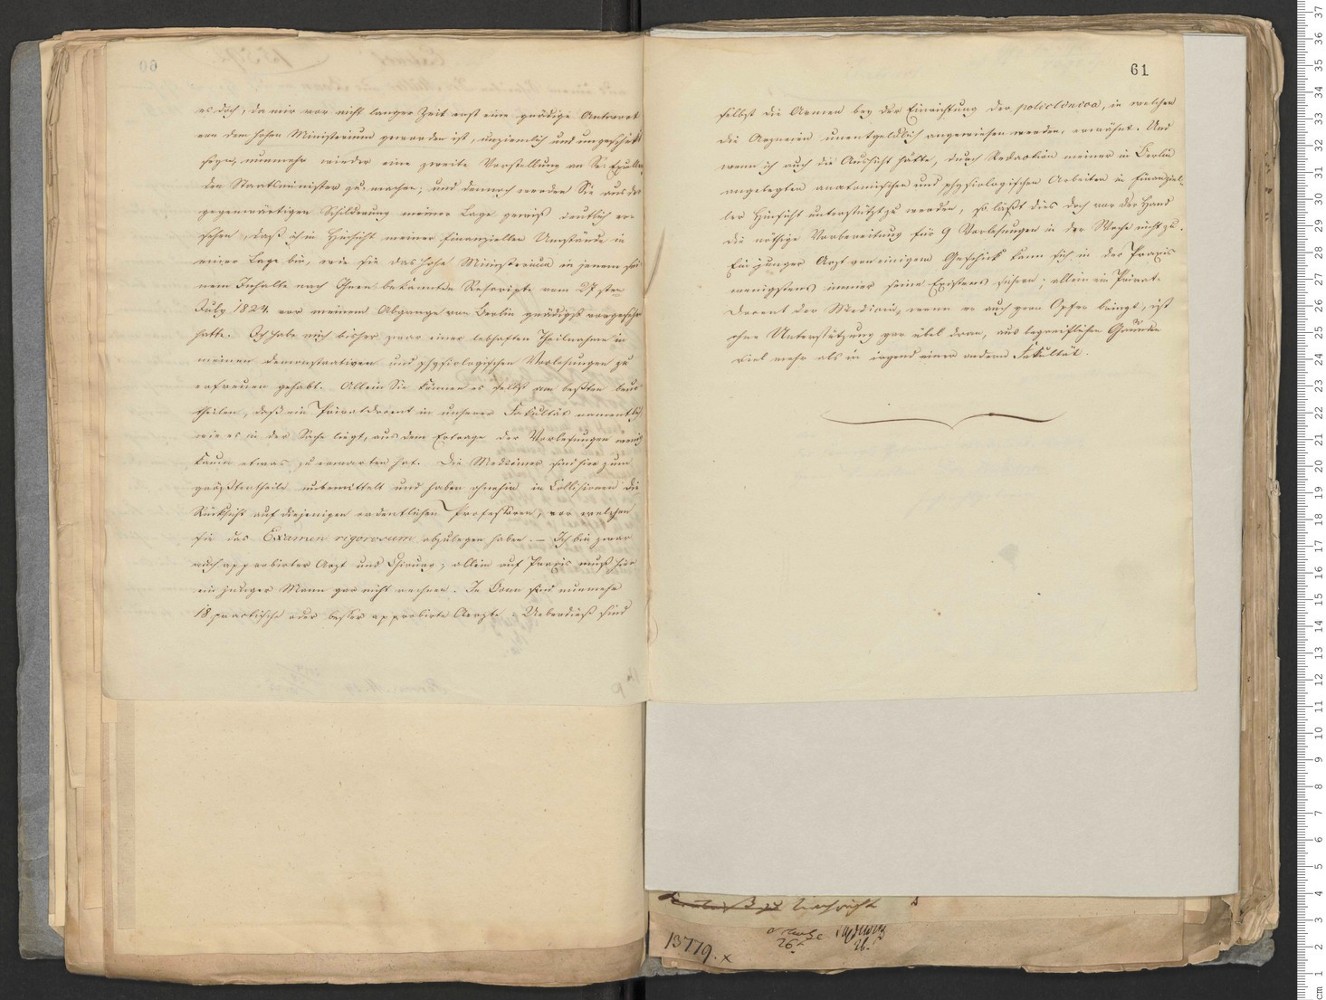 es doch, da mir vor nicht langer Zeit erst eine gnädige Antwort
von dem hohen Ministerium geworden ist, unziemlich und ungeschickt
nunmehr wieder eine zweite Vorstellung an Se Excellenz
den Staatsminister zu machen, und dennoch werden Sie aus der
gegenwärtigen Schilderung meiner Lage gewiß deutlich er-
sehen, daß ich in Hinsicht meiner finanziellen Umstände in
einer Lage bin, wie sie das hohe Ministerium in jenem sei
nem Inhalte nach Ihnen bekannten Rescripte vom 27sten
July 1824 vor meinem Abgange von Berlin gnädigst vorgesehen
hatte. Ich habe mich bisher zwar einer lebhaften Theilnahme in
meinen demonstrativen und physiologischen Vorlesungen zu
erfreuen gehabt. Allein Sie können es selbst am besten beur
theilen, daß ein Privatdocent in unserer Fakultät namentlich
wie es in der Sache liegt, aus dem Ertrage der Vorlesungen wenig
kaum etwas zu erwarten hat. Die Mediciner sind hier zum
größtentheils unbemittelt und haben ohnehin in Collisionen die
Rücksicht auf diejenigen ordentlichen Professoren, vor welchen
sie das Examen rigorosum abzulegen haben. – Ich bin zwar
auch approbirter Arzt und Chirurg; allein auf Praxis muß hier
ein junger Mann gar nicht rechnen. In Bonn sind nunmehr
18 practische oder besser approbirte Aerzte. Ueberdieß sind
61
selbst die Armen bey der Einrichtung der policlinica, in welchen
die Arzneien unentgeldlich angewiesen werden, verwöhnt. Und
wenn ich auch die Aussicht hätte, durch Redaction meiner in Berlin
angelegten anatomischen und physiologischen Arbeiten in finanziel
ler Hinsicht unterstützt zu werden, so läßt dies doch vor der Hand
die nöthige Vorbereitung für 9 Vorlesungen in der Woche nicht zu.
Ein junger Arzt von einigem Geschick kann sich in der Praxis
wenigstens immer seine Existenz sichern; allein ein Privat-
docent der Medicin, wenn er auch gern Opfer bringt, ist
ohne Unterstützung gar übel dran, aus begreiflichen Gründen
viel mehr als in irgend einer andern Fakultät.
Nachricht
13779. x
26